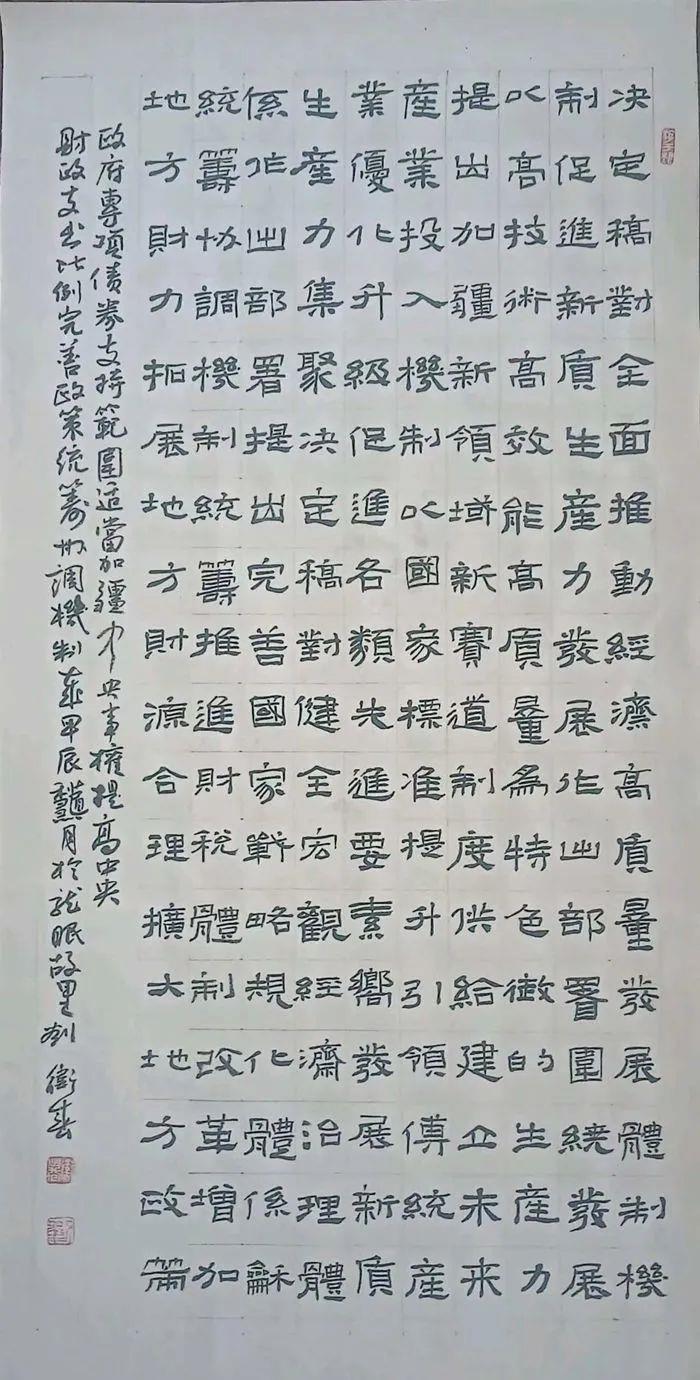 决定稿對全面推動經濟高質量發展體制機
制促進新質生産力發展作出部署圍繞發展
以高技術高效能高質量為特色徵的生産力
提出加疆新領域新賽道制度供給建立未来
産業投入機制以國家標准提升引領傳統産
業優化升級促進各類先進要素嚮發展新質
生産力集聚决定稿對健全宏觀經濟治理體
係作出部署提出完善國家戰略規化體係龢
統籌協調機制統籌推進財税體制改革增加
地方財力拓展地方財源合理擴大地方政
政府專項债券支持範圍适當加疆中央事權提高中央
財政支出比例完善政策統籌協調機制歲甲辰月於龍眠故里刘衛